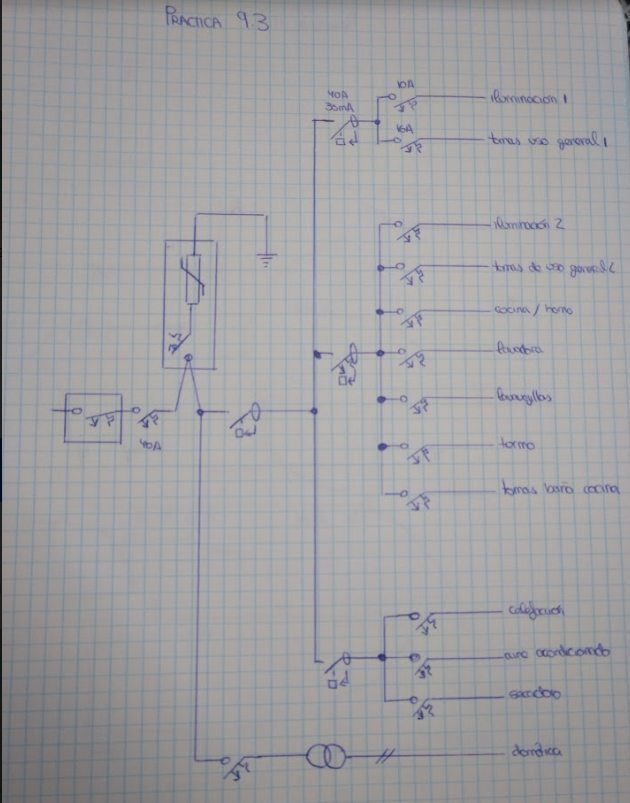 PRACTICA 9.3
40A
30mA
10A
iluminacion 1
16A
tomas uso general 1
iluminación 2
tomas de uso general 2
cocina / horno
lavadora
lavavajillas
termo
tomas baño cocina
40A
calefaccion
aire acondicionado
secadora
domótica